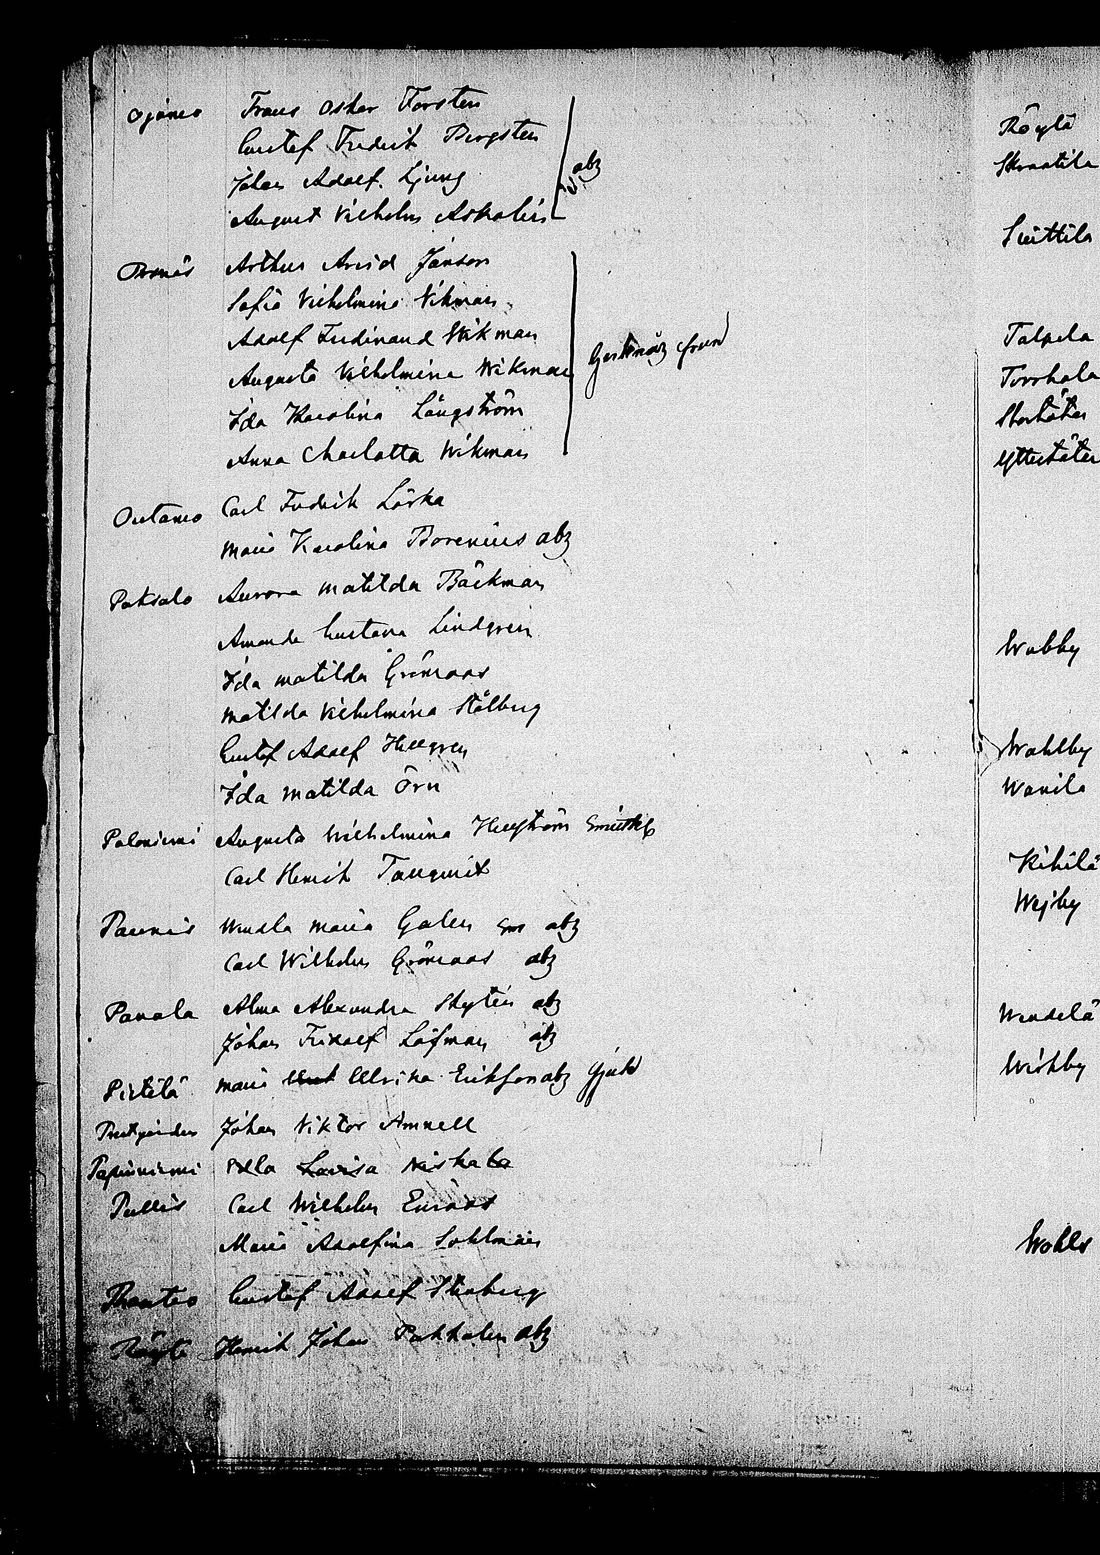 Ojamo Frans Oskar Forstén
Gustaf Fredrik Bergsten
Johan Adolf Ljung
abz
August Vilhelm Askolin
Arthur Arvid Janson
Sofia Vilhelmina Vikman
Adolf Ferdinand Wikman
Augusta Vilhelmina Wikman
Ida Karolina Långström
Anna Charlotta Wikman
Outamo Carl Fredrik Lörka
Maria Karolina Borenius abz
Paksalo Aurora Matilda Bäckman
Amanda Gustava Lindgren
Ida Matilda Grönroos
Matilda Vilhelmina Stålberg
Gustaf Adolf Hellgren
Ida Matilda Örn
Paloniemi Augusta Wilhelmina Hellström
Carl Henrik Tallqvist
Paunis Wendla Maria Galen abz
Carl Wilhelm Grönroos abz
Panala Alma Alexandra Skytén abz
Johan Fridolf Löfman abz
Pietilä Maria Ulrika Erikson abz
Johan Viktor Amnell
Papinniemi Edla Lovisa Niskala
Pullis Carl Wilhelm Enroos
Maria Adolfina Sohlman
Gustaf Adolf Stenberg
Röylä Henrik Johan Pakkalen abz
Röylä
Skraatila
Suittila
Talpela
Torhola
Ytterstäter
Wabby
Wahlby
Wanila
Kihilä
Wejby
Wendelä
Wishby
Wohls